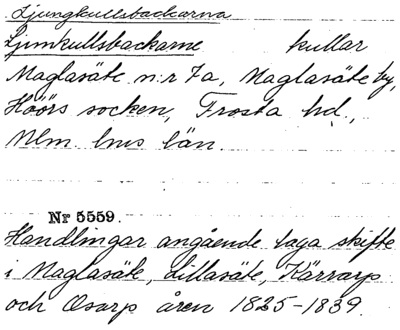 Ljungkullsbackarna
Ljunkullsbackarne kullar
Maglasäte n:r 7a, Maglasäte by,
Höörs socken, Frosta hd.,
Mlm. hus län.
Nr 5559.
Handlingar angående laga skifte
i Maglasäte, Lillasäte, Kärrarp
och Osarp åren 1825-1839.